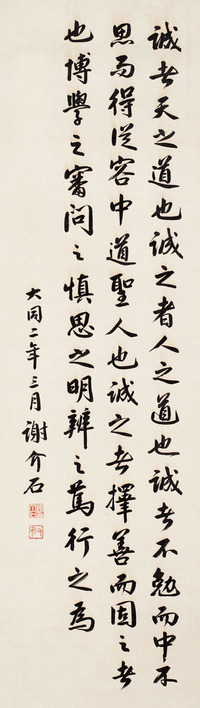 誠者天之道也誠之者人之道也誠者不勉而中不
思而得從容中道聖人也誠之者擇善而固之者
也博學之審問之慎思之明辨之篤行之為
大同二年三月 謝介石